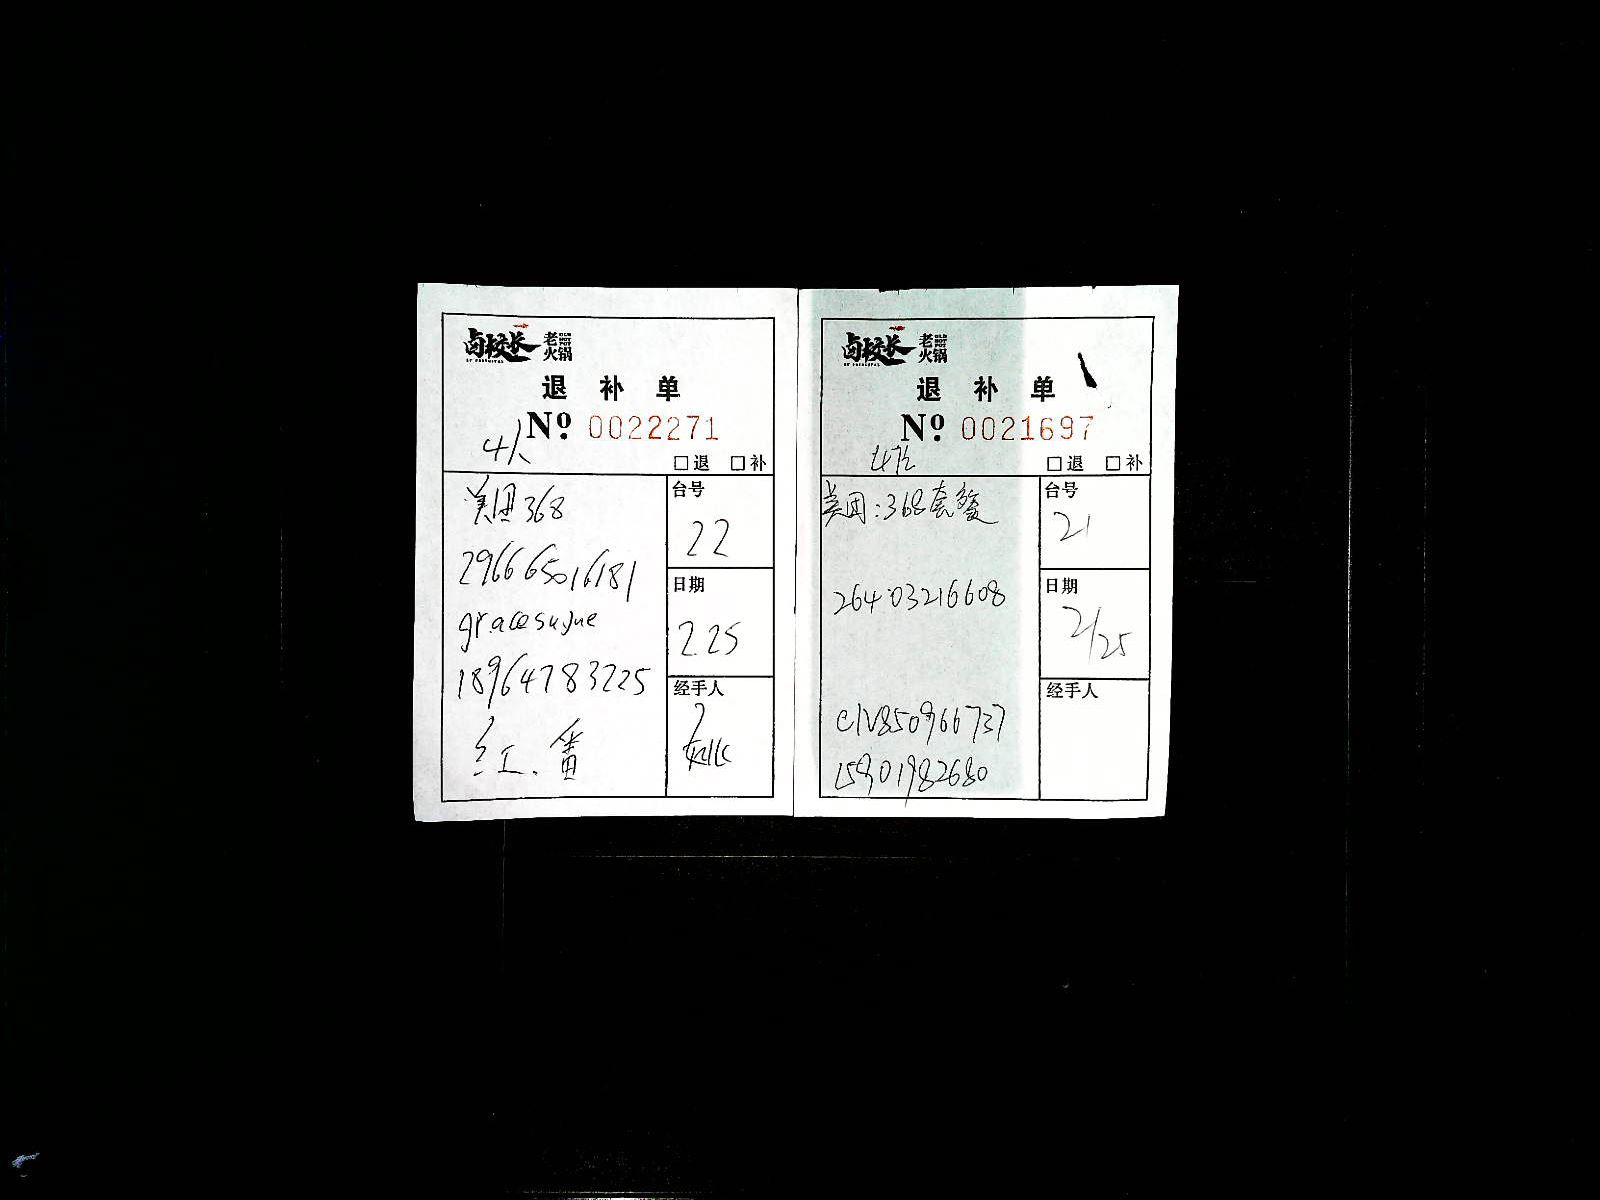 卤校长 老火锅
退 补 单
No. 0022271
4人
□退 □补
美团368
296665016181
gracesujue
18964783225
红.番
台号
22
日期
2.25
经手人
卤校长 老火锅
退 补 单
No. 0021697
4位
□退 □补
美团:368套餐
264 03216608
CIV850966737
15901982680
台号
21
日期
2/25
经手人